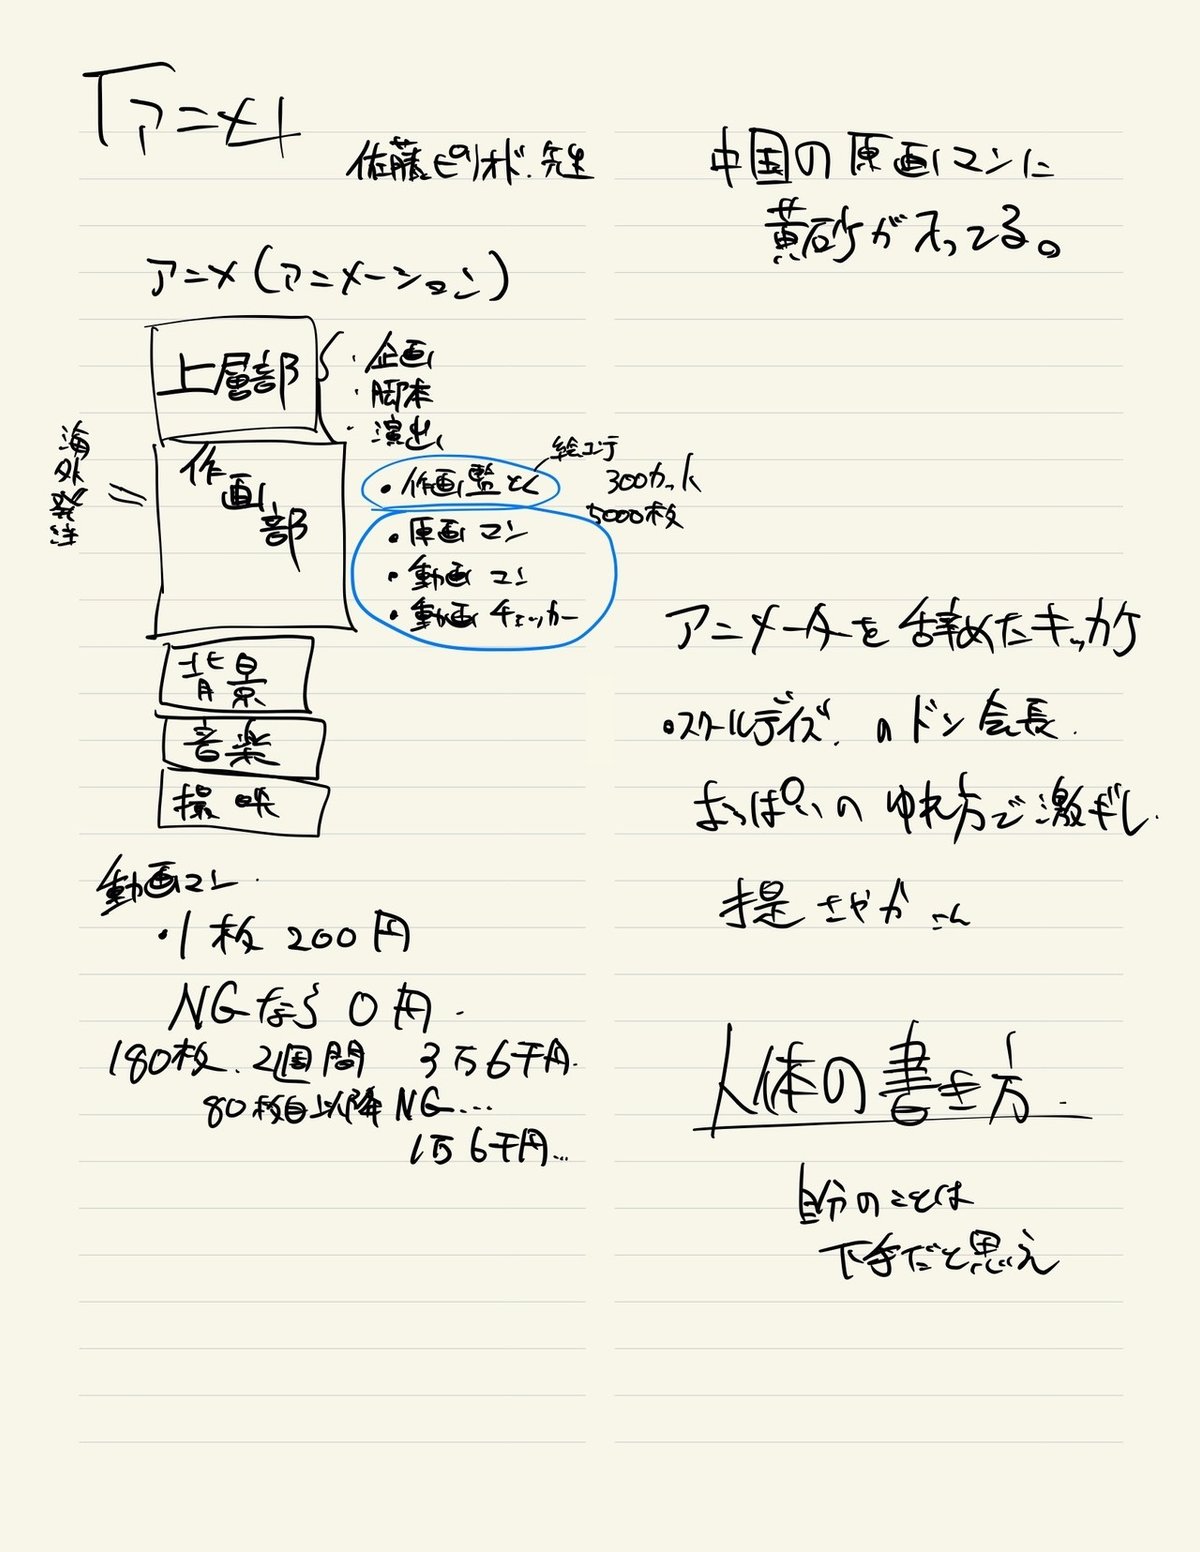 「アニメ」
佐藤ピリオド.先生
アニメ(アニメーション)
上層部
・企画
・脚本
・演出
海外発注
=
作画部
・作画監とく
絵コンテ
300カット
5000枚
・原画マン
・動画マン
・動画チェッカー
背景
音楽
撮映
動画マン.
・1枚 200円
NGなら 0円.
180枚.2週間 3万6千円.
80枚目以降NG...
1万6千円...
中国の原画マンに
黄砂が入ってる。
アニメーターを辞めたキッカケ
・スクールデイズ.のドン会長.
よっぱらいのゆれ方で激ギレ.
提さやかさん
人体の書き方.
自分のことは
下手だと思え